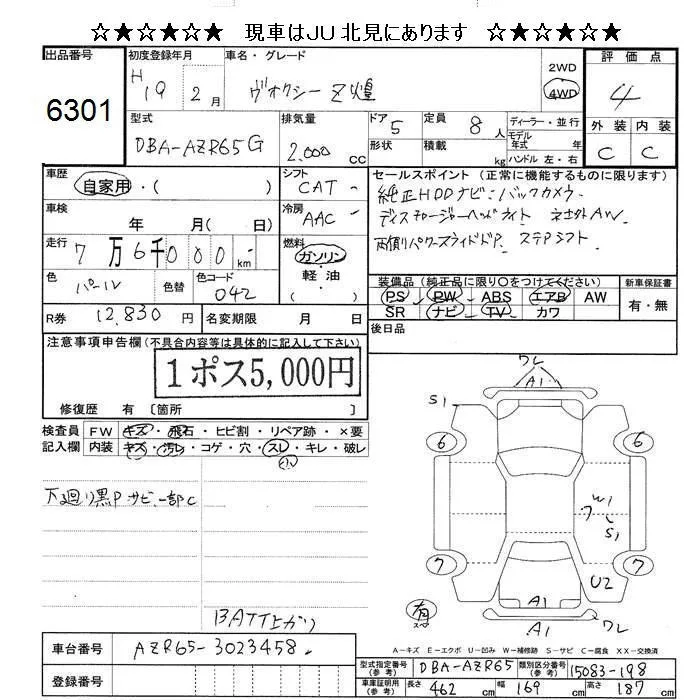 ☆★☆★☆ 現車はJU北見にあります ☆★☆★☆
出品番号 6301
初度登録年月 H19 2月
車名・グレード ヴォクシー Z煌
2WD 4WD
評価点 4
型式 DBA-AZR65G
排気量 2,000 cc
ドア 5
形状
定員 8人
積載 kg
ディーラー・並行
モデル年式 年式
ハンドル 左・右
外装 内装
C C
車歴 自家用・( )
シフト CAT
セールスポイント (正常に機能するものに限ります)
純正HDDナビ バックカメラ
ディスチャージャーヘッドライト ネオ外AW
両側パワースライドドア ステアシフト
車検 年 月( 日)
冷房 AAC
走行 7万6千000km
燃料 ガソリン・軽油・( )
色 パール
色替
色コード 042
装備品 (純正品に限り〇をつけてください)
PS PW ABS エアB AW
SR ナビ TV カワ
新車保証書 有・無
R券 12,830円
名変期限 月 日
後日品
注意事項申告欄 (不具合内容等は具体的に記入して下さい)
1ポス5,000円
修復歴 有 〔箇所 〕
検査員 FW キズ・飛石・ヒビ割・リペア跡・×要
記入欄 内装 キズ・汚レ・コゲ・穴・スレ・キレ・破レ
小
下廻り黒P サビ 一部C
BATT上がり
ワレ
A1
S1
6 6
W1
ワレ
S1
7 7
U2
A1
有
スペア
A1
ワレ
A-キズ E-エクボ U-凹み W-補修跡 S-サビ C-腐食 XX-交換済
車台番号 AZR65-3023458
登録番号
型式指定番号(参考) DBA-AZR65
類別区分番号(参考) 15083-198
車庫証明用(参考) 長さ 462cm 幅 169cm 高さ 187cm